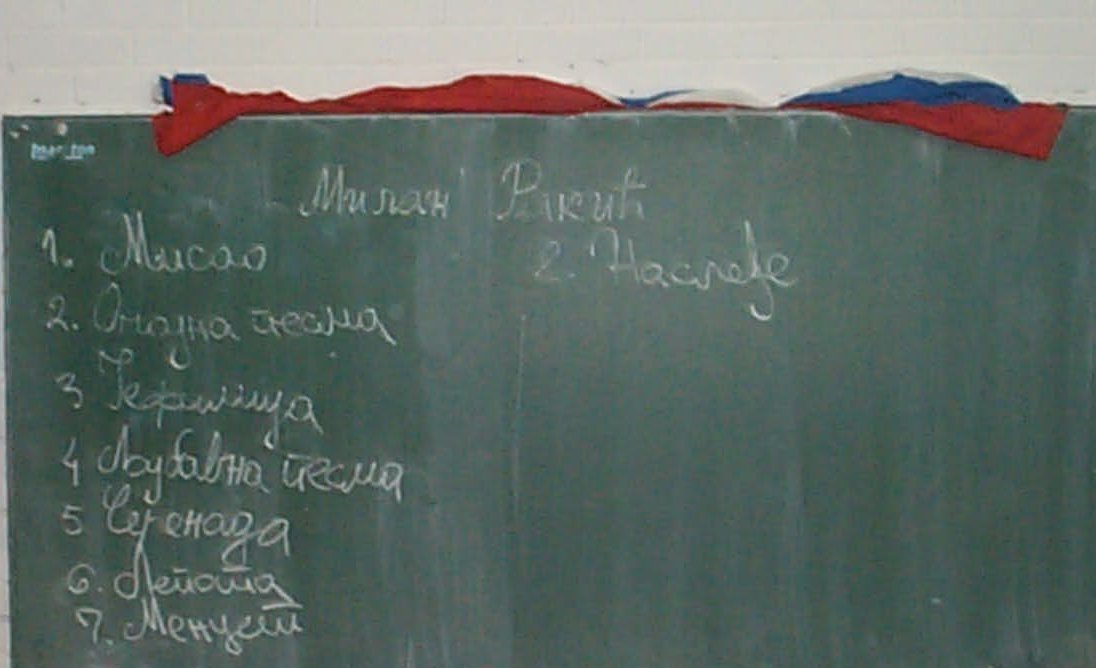 Милан Ракић
1. Мисао
2. Очајна песма
3 Јефимија
4 Љубавна песма
5 Серенада
6. Лепота
7. Менует
8. Наслеђе